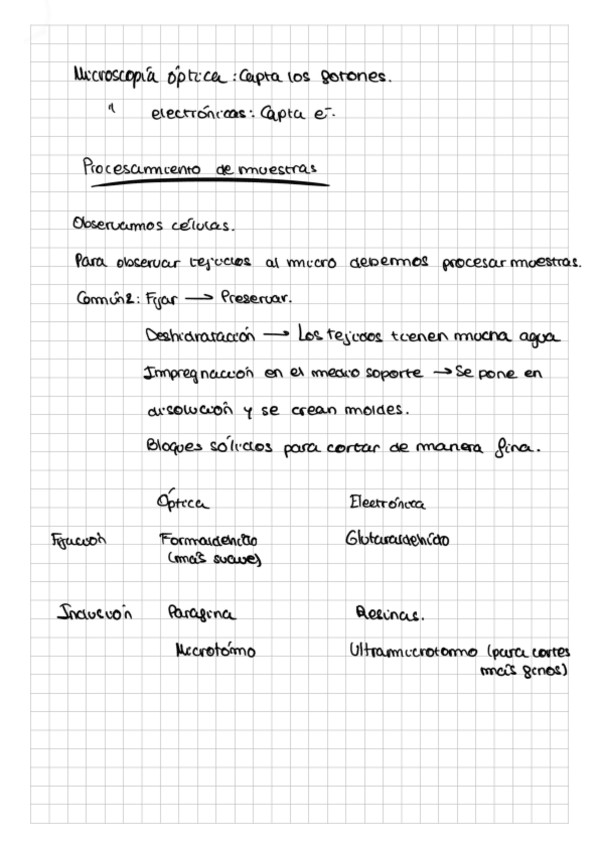 Microscopía óptica: Capta los fotones.
" electrónicas: Capta e-.
Procesamiento de muestras
Observamos células.
Para observar tejidos al micro debemos procesar muestras.
Común2: Fijar → Preservar.
Deshidratación → Los tejidos tienen mucha agua
Impregnación en el medio soporte → Se pone en
disolución y se crean moldes.
Bloques sólidos para cortar de manera fina.
Óptica Electrónica
Fijación Formaldehído Glutaraldehído
(más suave)
Inclusión Parafina Resinas.
Microtómo Ultramicrotomo (para cortes
más finos)